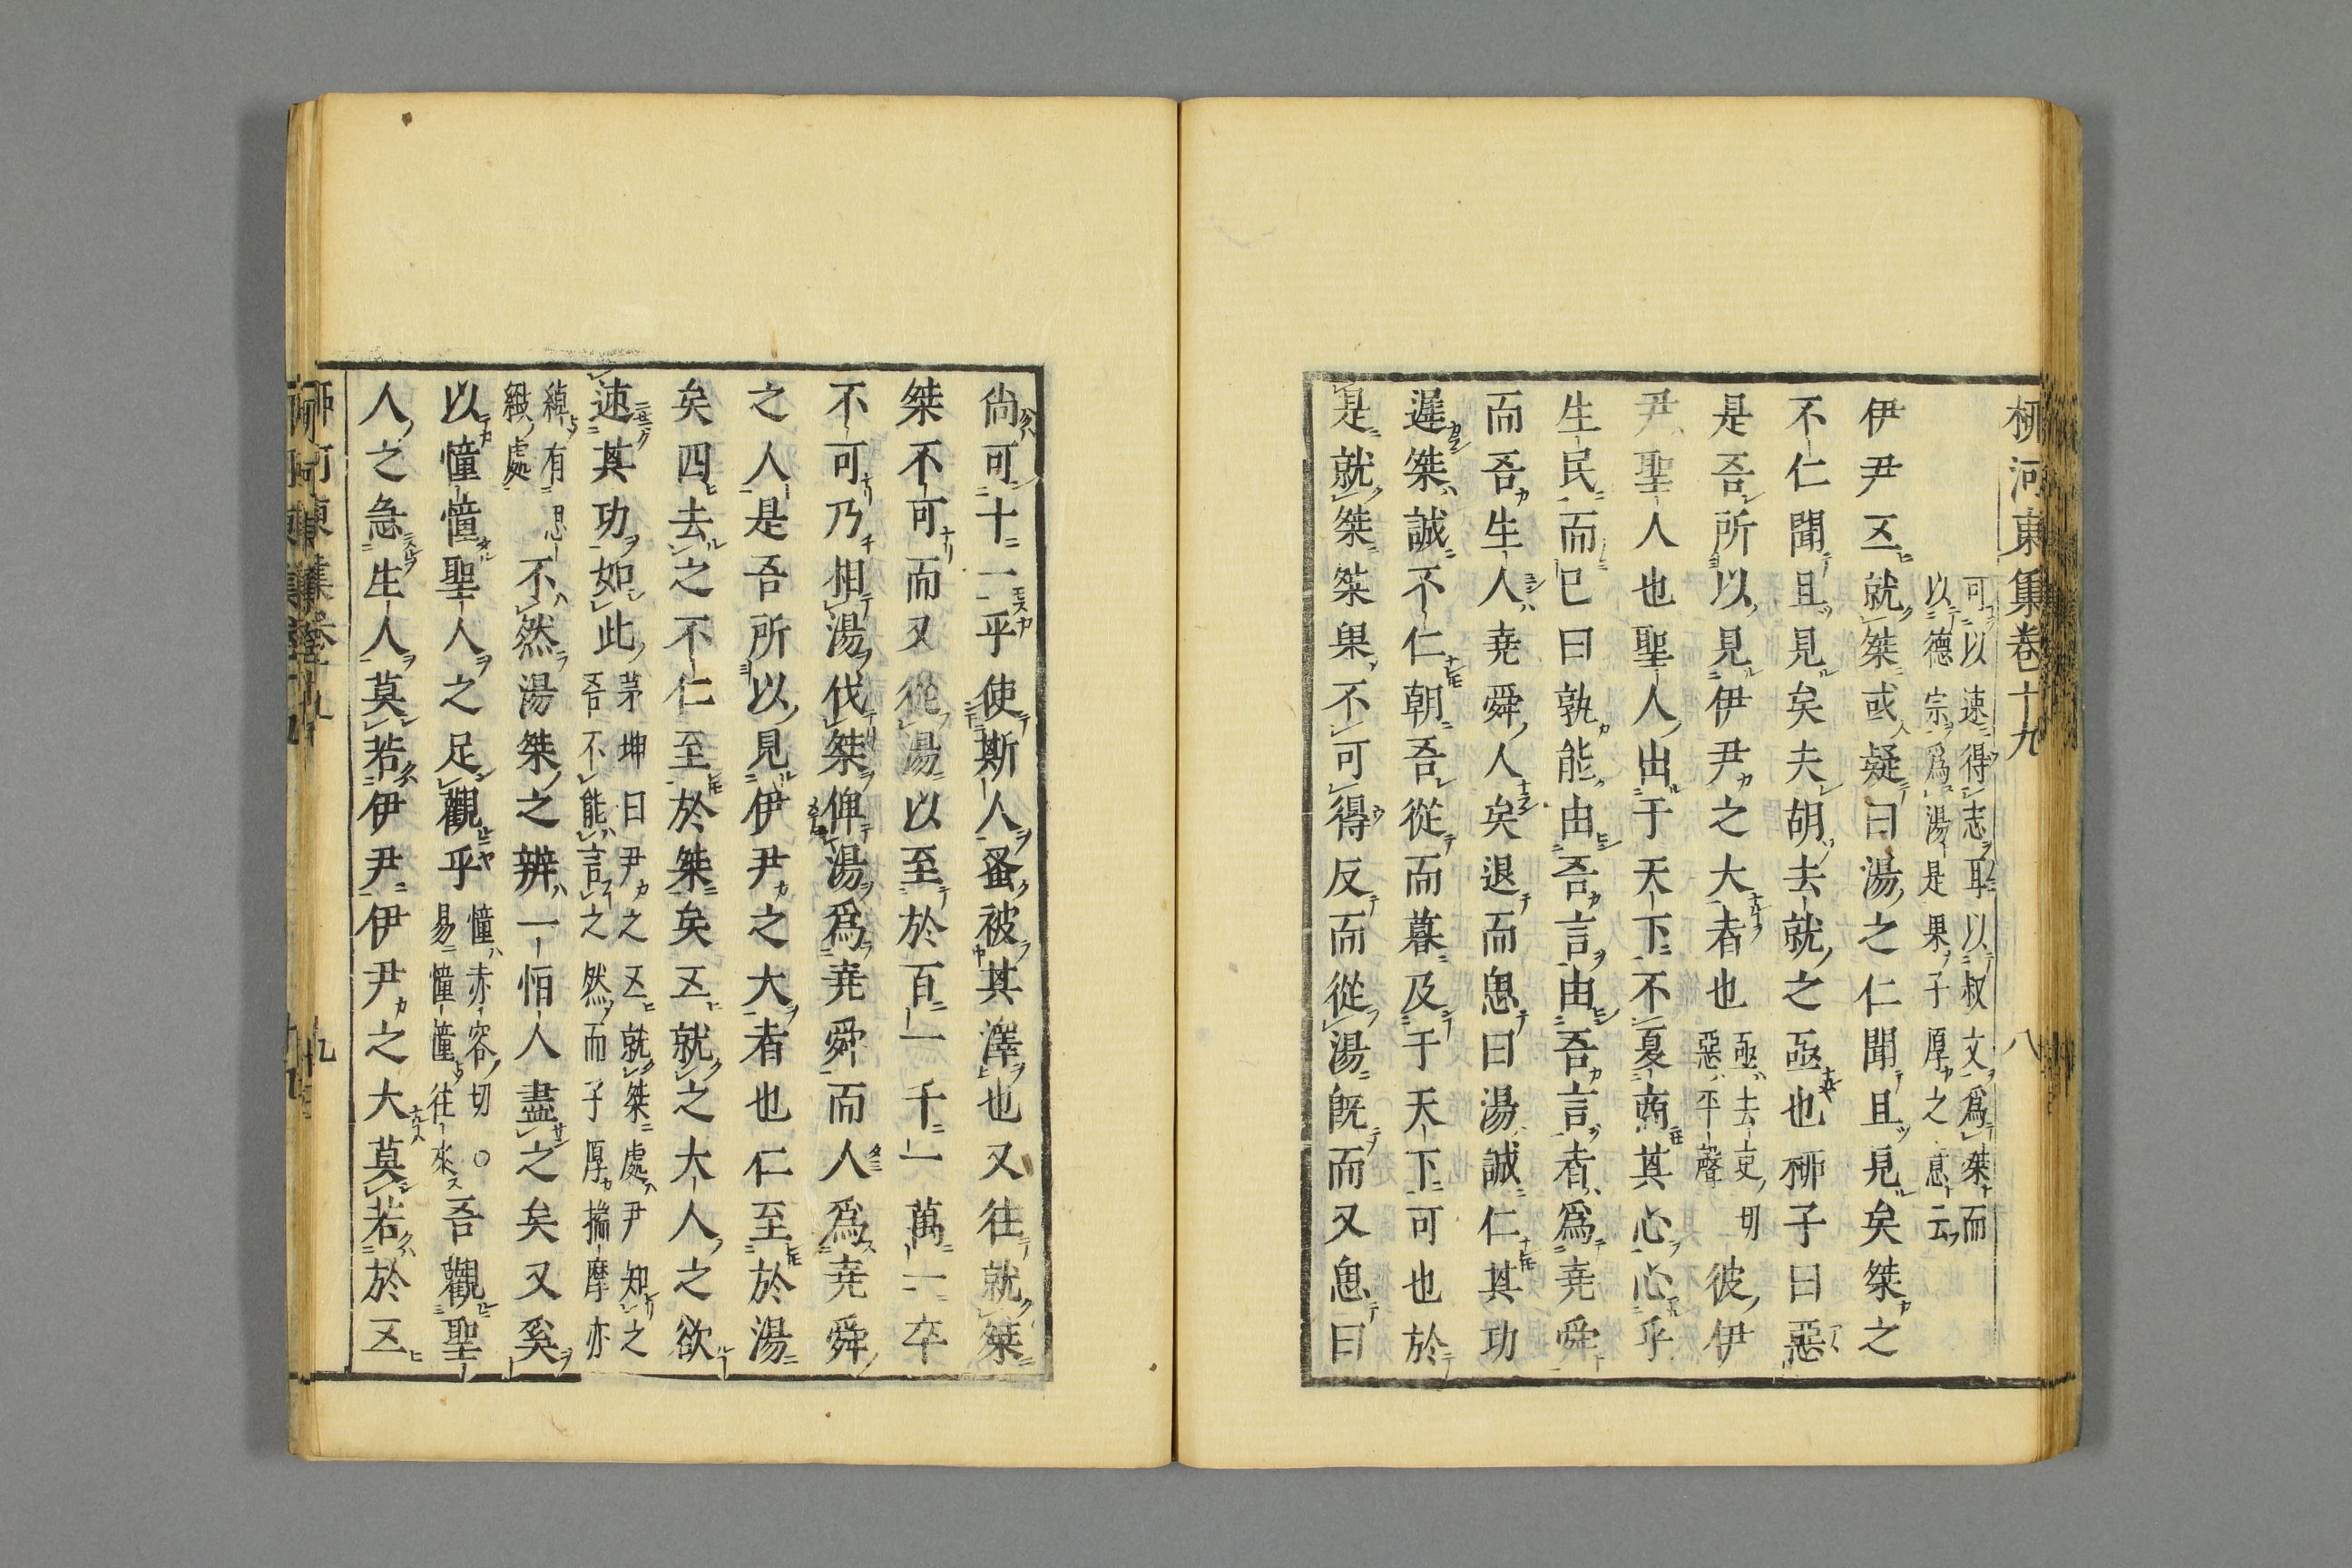 柳河東集卷十九　八
可以速得志耻以叔文爲桀而
以德宗爲湯是果子厚之意云
伊尹五就桀或疑曰湯之仁聞且見矣桀之
不仁聞且見矣夫胡去就之亟也柳子曰惡
是吾所以見伊尹之大者也亟去吏切惡平聲彼伊
尹聖人也聖人出于天下不夏商其心心乎
生民而已曰孰能由吾言由吾言者爲堯舜
而吾生人堯舜人矣退而思曰湯誠仁其功
遲桀誠不仁朝吾從而暮及于天下可也於
是就桀桀果不可得反而從湯旣而又思曰
尙可十一乎使斯人蚤被其澤也又往就桀
桀不可而又從湯以至於百一千一萬一卒
不可乃相湯伐桀俾湯爲堯舜而人爲堯舜
之人是吾所以見伊尹之大者也仁至於湯
矣四去之不仁至於桀矣五就之大人之欲
速其功如此茅坤曰尹之五就桀處尹知之吾不能言之然而子厚揣摩亦
綽有思緻處不然湯桀之辨一恒人盡之矣又奚
以憧憧聖人之足觀乎憧赤容切○易憧憧往來吾觀聖
人之急生人莫若伊尹伊尹之大莫若於五